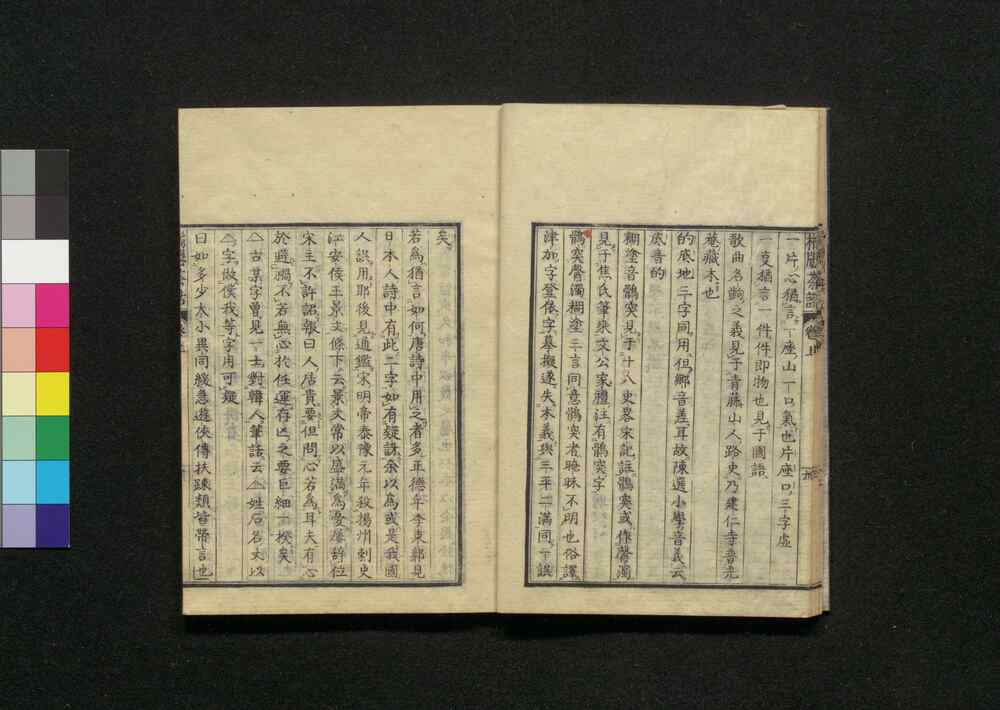 一片心猶言一座山一口氣也片座口三字虛
一度猶言一件件即物也見于國語
歌曲名齣之義見于青藤山人路史乃建仁寺普光
菴藏本也
的底地三字同用但鄉音差耳故陳選小學音義云
底音的
糊塗音鶻突見于十八史畧宋記註鶻突或作鶻濁
見于焦氏筆乘文公家禮注有鶻突字
鶻突鶻濁糊塗三言同意鶻突者曉昧不明也俗譯
津加字登倭字摹擬遂失本義與三平二滿同一誤
矣
若為猶言如何唐詩中用之者多正德年李東郭見
日本人詩中有此二字如有疑訝余以為或是我國
人誤用耶後見通鑑宋明帝泰豫元年殺揚州刺史
江安侯王景文條下云景文常以盛滿為憂屢辭位
宋主不許詔報曰人居貴要但問心若為耳夫有心
於避禍不若無心於任運存亡之要巨細一揆矣
△古某字曾見一士對韓人筆話云△姓△名文以
△字做僕我等字用可疑
曰如多少大小異同緩急遊俠傳扶疎類皆帶言也